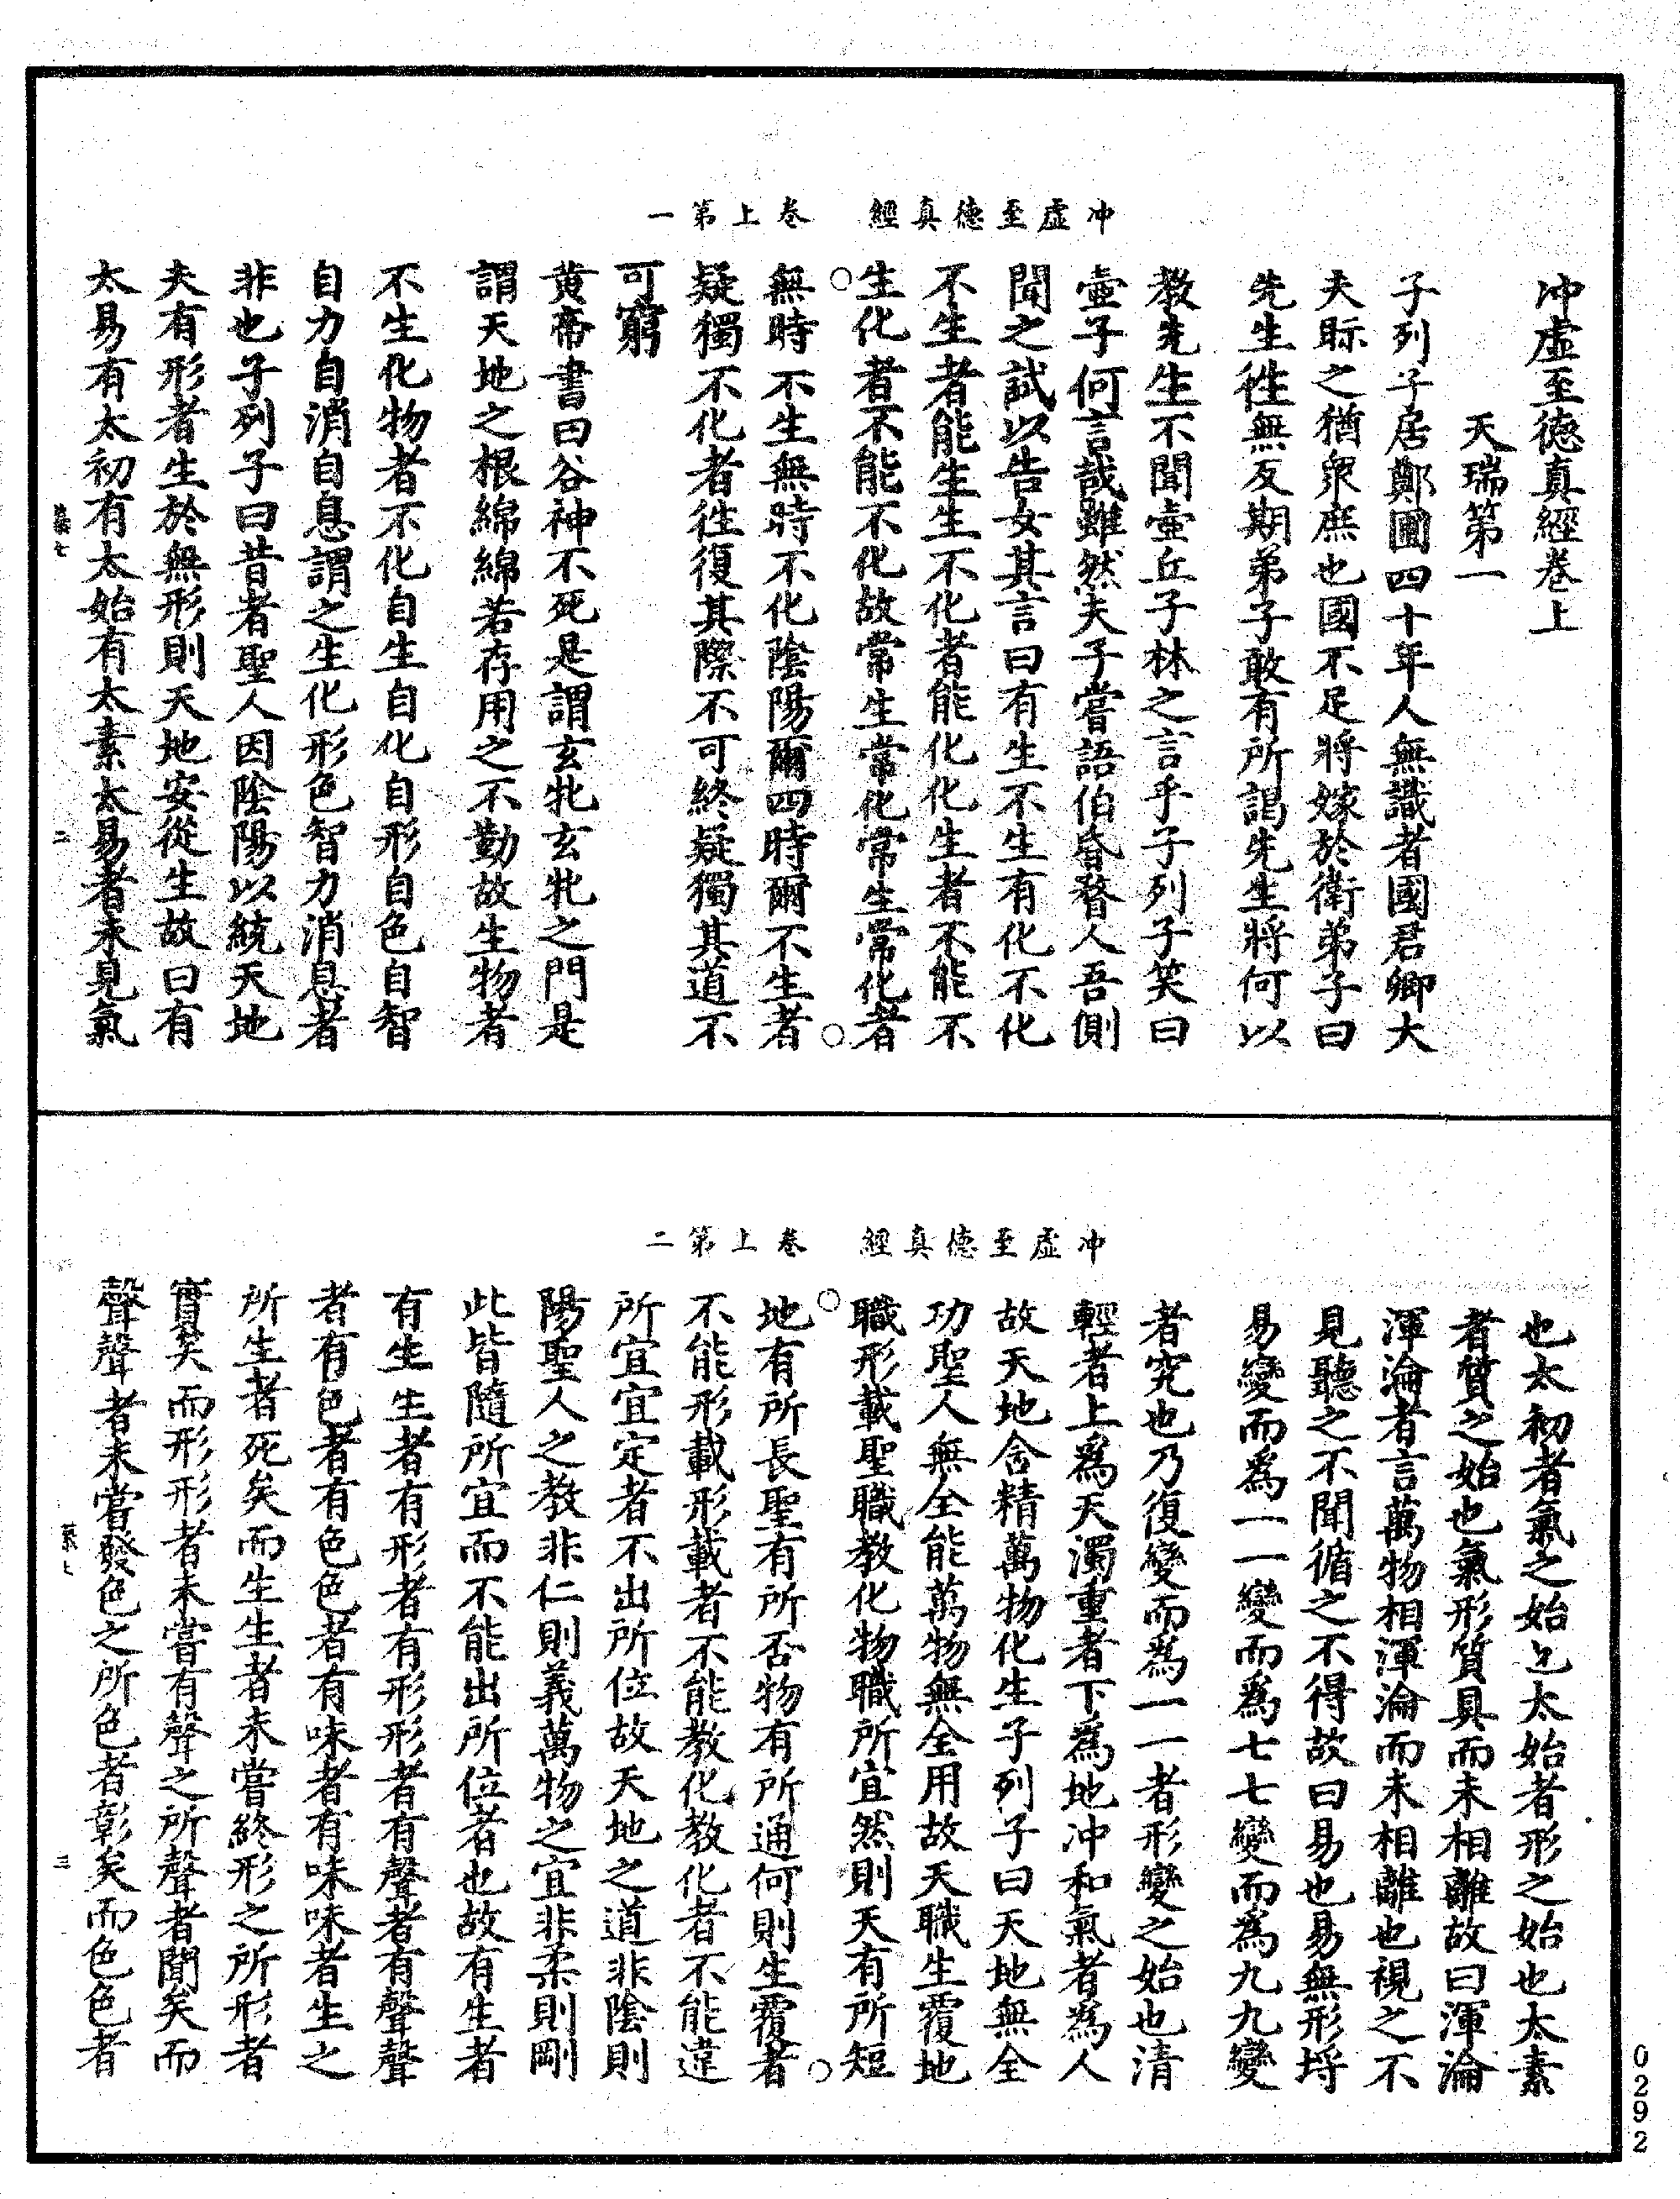 冲虛至德真經　卷上第一
冲虛至德真經卷上
天瑞第一
子列子居鄭圃四十年人無識者國君卿大
夫眎之猶衆庶也國不足將嫁於衛弟子曰
先生往無反期弟子敢有所謁先生將何以
教先生不聞壷丘子林之言乎子列子笑曰
壷子何言哉雖然夫子嘗語伯昏瞀人吾側
聞之試以告女其言曰有生不生有化不化
不生者能生生不化者能化化生者不能不
生化者不能不化故常生常化常生常化者
無時不生無時不化陰陽爾四時爾不生者
疑獨不化者往復其際不可終疑獨其道不
可窮
黃帝書曰谷神不死是謂玄牝玄牝之門是
謂天地之根綿綿若存用之不勤故生物者
不生化物者不化自生自化自形自色自智
自力自消自息謂之生化形色智力消息者
非也子列子曰昔者聖人因陰陽以統天地
夫有形者生於無形則天地安從生故曰有
太易有太初有太始有太素太易者未見氣
二
冲虛至德真經　卷上第二
也太初者氣之始也太始者形之始也太素
者質之始也氣形質具而未相離故曰渾淪
渾淪者言萬物相渾淪而未相離也視之不
見聽之不聞循之不得故曰易也易無形埒
易變而爲一一變而爲七七變而爲九九變
者究也乃復變而爲一一者形變之始也清
輕者上爲天濁重者下爲地冲和氣者爲人
故天地含精萬物化生子列子曰天地無全
功聖人無全能萬物無全用故天職生覆地
職形載聖職教化物職所宜然則天有所短
地有所長聖有所否物有所通何則生覆者
不能形載形載者不能教化教化者不能違
所宜宜定者不出所位故天地之道非陰則
陽聖人之教非仁則義萬物之宜非柔則剛
此皆隨所宜而不能出所位者也故有生者
有生生者有形者有形形者有聲者有聲聲
者有色者有色色者有味者有味味者生之
所生者死矣而生生者未嘗終形之所形者
實矣而形形者未嘗有聲之所聲者聞矣而
聲聲者未嘗發色之所色者彰矣而色色者
三
0292